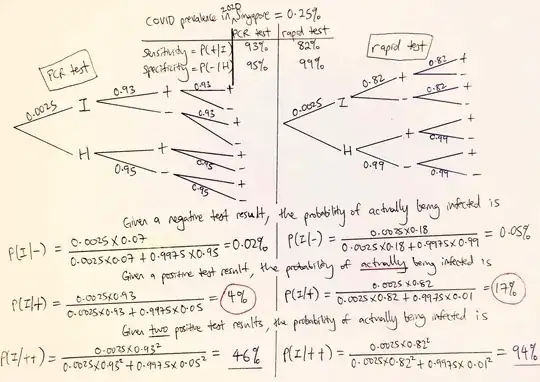 2020
COVID prevalence in Singapore = 0.25%
PCR test rapid test
Sensitivity = P(+|I) 93% 82%
Specificity = P(-|H) 95% 99%
PCR test
0.0025 I 0.93 + 0.93 +
-
- 0.93 +
-
H + +
0.95 -
0.95 - +
0.95 -
rapid test
0.0025 I 0.82 + 0.82 +
-
- 0.82 +
-
H + +
0.99 -
0.99 - +
0.99 -
Given a negative test result, the probability of actually being infected is
P(I|-) = 0.0025×0.07 / 0.0025×0.07 + 0.9975×0.95 = 0.02%
P(I|-) = 0.0025×0.18 / 0.0025×0.18 + 0.9975×0.99 = 0.05%
Given a positive test result, the probability of actually being infected is
P(I|+) = 0.0025×0.93 / 0.0025×0.93 + 0.9975×0.05 = 4%
P(I|+) = 0.0025×0.82 / 0.0025×0.82 + 0.9975×0.01 = 17%
Given two positive test results, the probability of actually being infected is
P(I|++) = 0.0025×0.93² / 0.0025×0.93² + 0.9975×0.05² = 46%
P(I|++) = 0.0025×0.82² / 0.0025×0.82² + 0.9975×0.01² = 94%